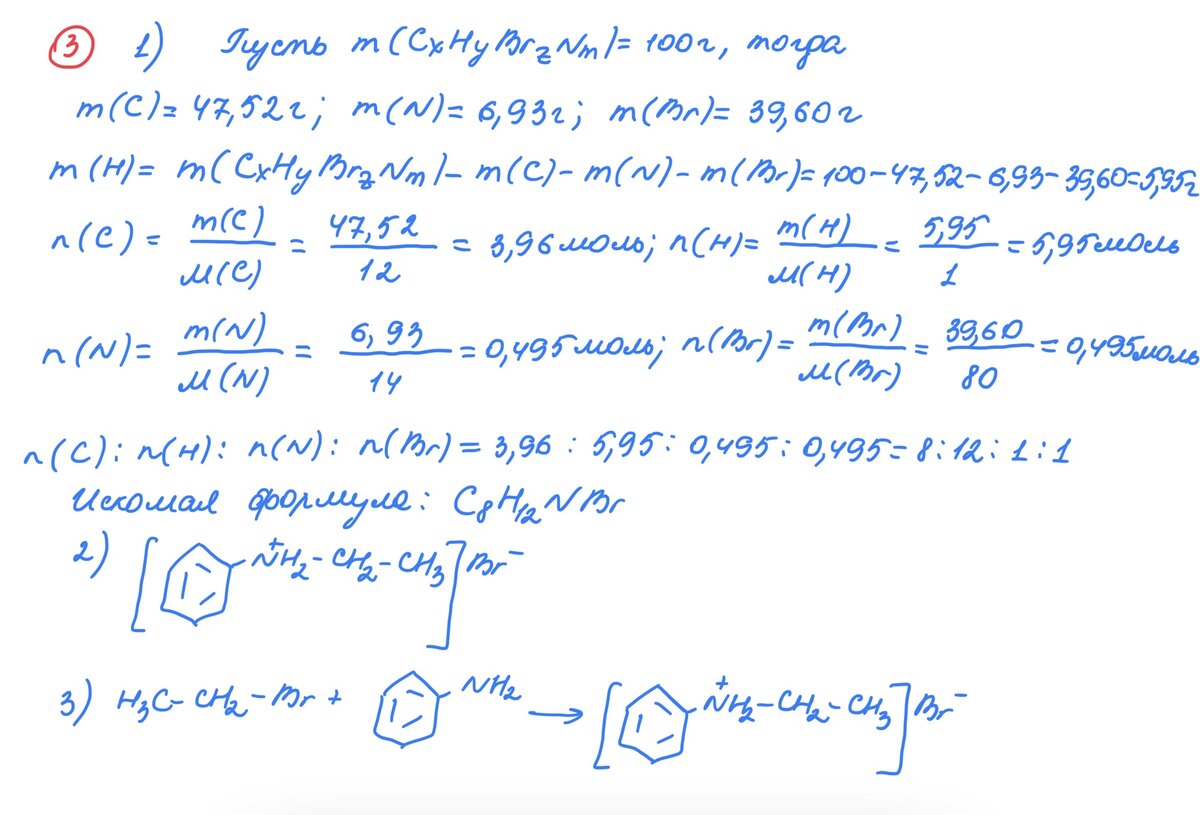 3 1) Пусть m(CxHyBrzNm)= 100г, тогда
m(C)= 47,52г; m(N)= 6,93г; m(Br)= 39,60г
m(H)= m(CxHyBrzNm)- m(C)- m(N)- m(Br)= 100-47,52-6,93-39,60=5,95г
n(C) = m(C)/M(C) = 47,52/12 = 3,96 моль; n(H)= m(H)/M(H) = 5,95/1 = 5,95 моль
n(N)= m(N)/M(N) = 6,93/14 = 0,495 моль; n(Br)= m(Br)/M(Br) = 39,60/80 = 0,495 моль
n(C): n(H): n(N): n(Br)= 3,96 : 5,95 : 0,495 : 0,495= 8:12:1:1
Искомая формула: C8H12NBr
2) [ N⁺H2-CH2-CH3] Br⁻
3) H3C-CH2-Br + NH2 → [ N⁺H2-CH2-CH3] Br⁻